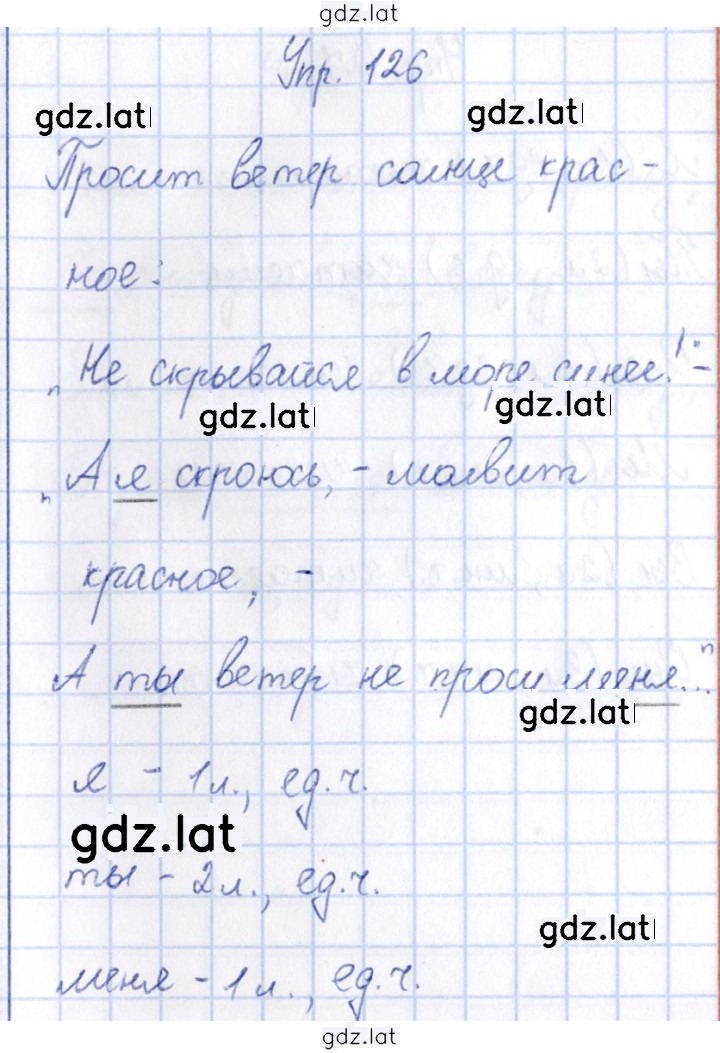 gdz.lat
Упр. 126
gdz.lat
gdz.lat
Просит ветер солнце крас-
ное:
„Не скрывайся в море синее!" -
gdz.lat
gdz.lat
„А я скроюсь, - молвит
красное, -
А ты ветер не проси меня..."
gdz.lat
я - 1 л., ед.ч.
gdz.lat
ты - 2 л., ед.ч.
gdz.lat
меня - 1 л., ед.ч.
gdz.lat